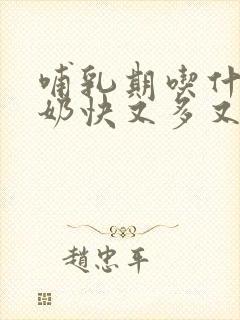 哺乳期喫什
奶快又多又
趙忠平